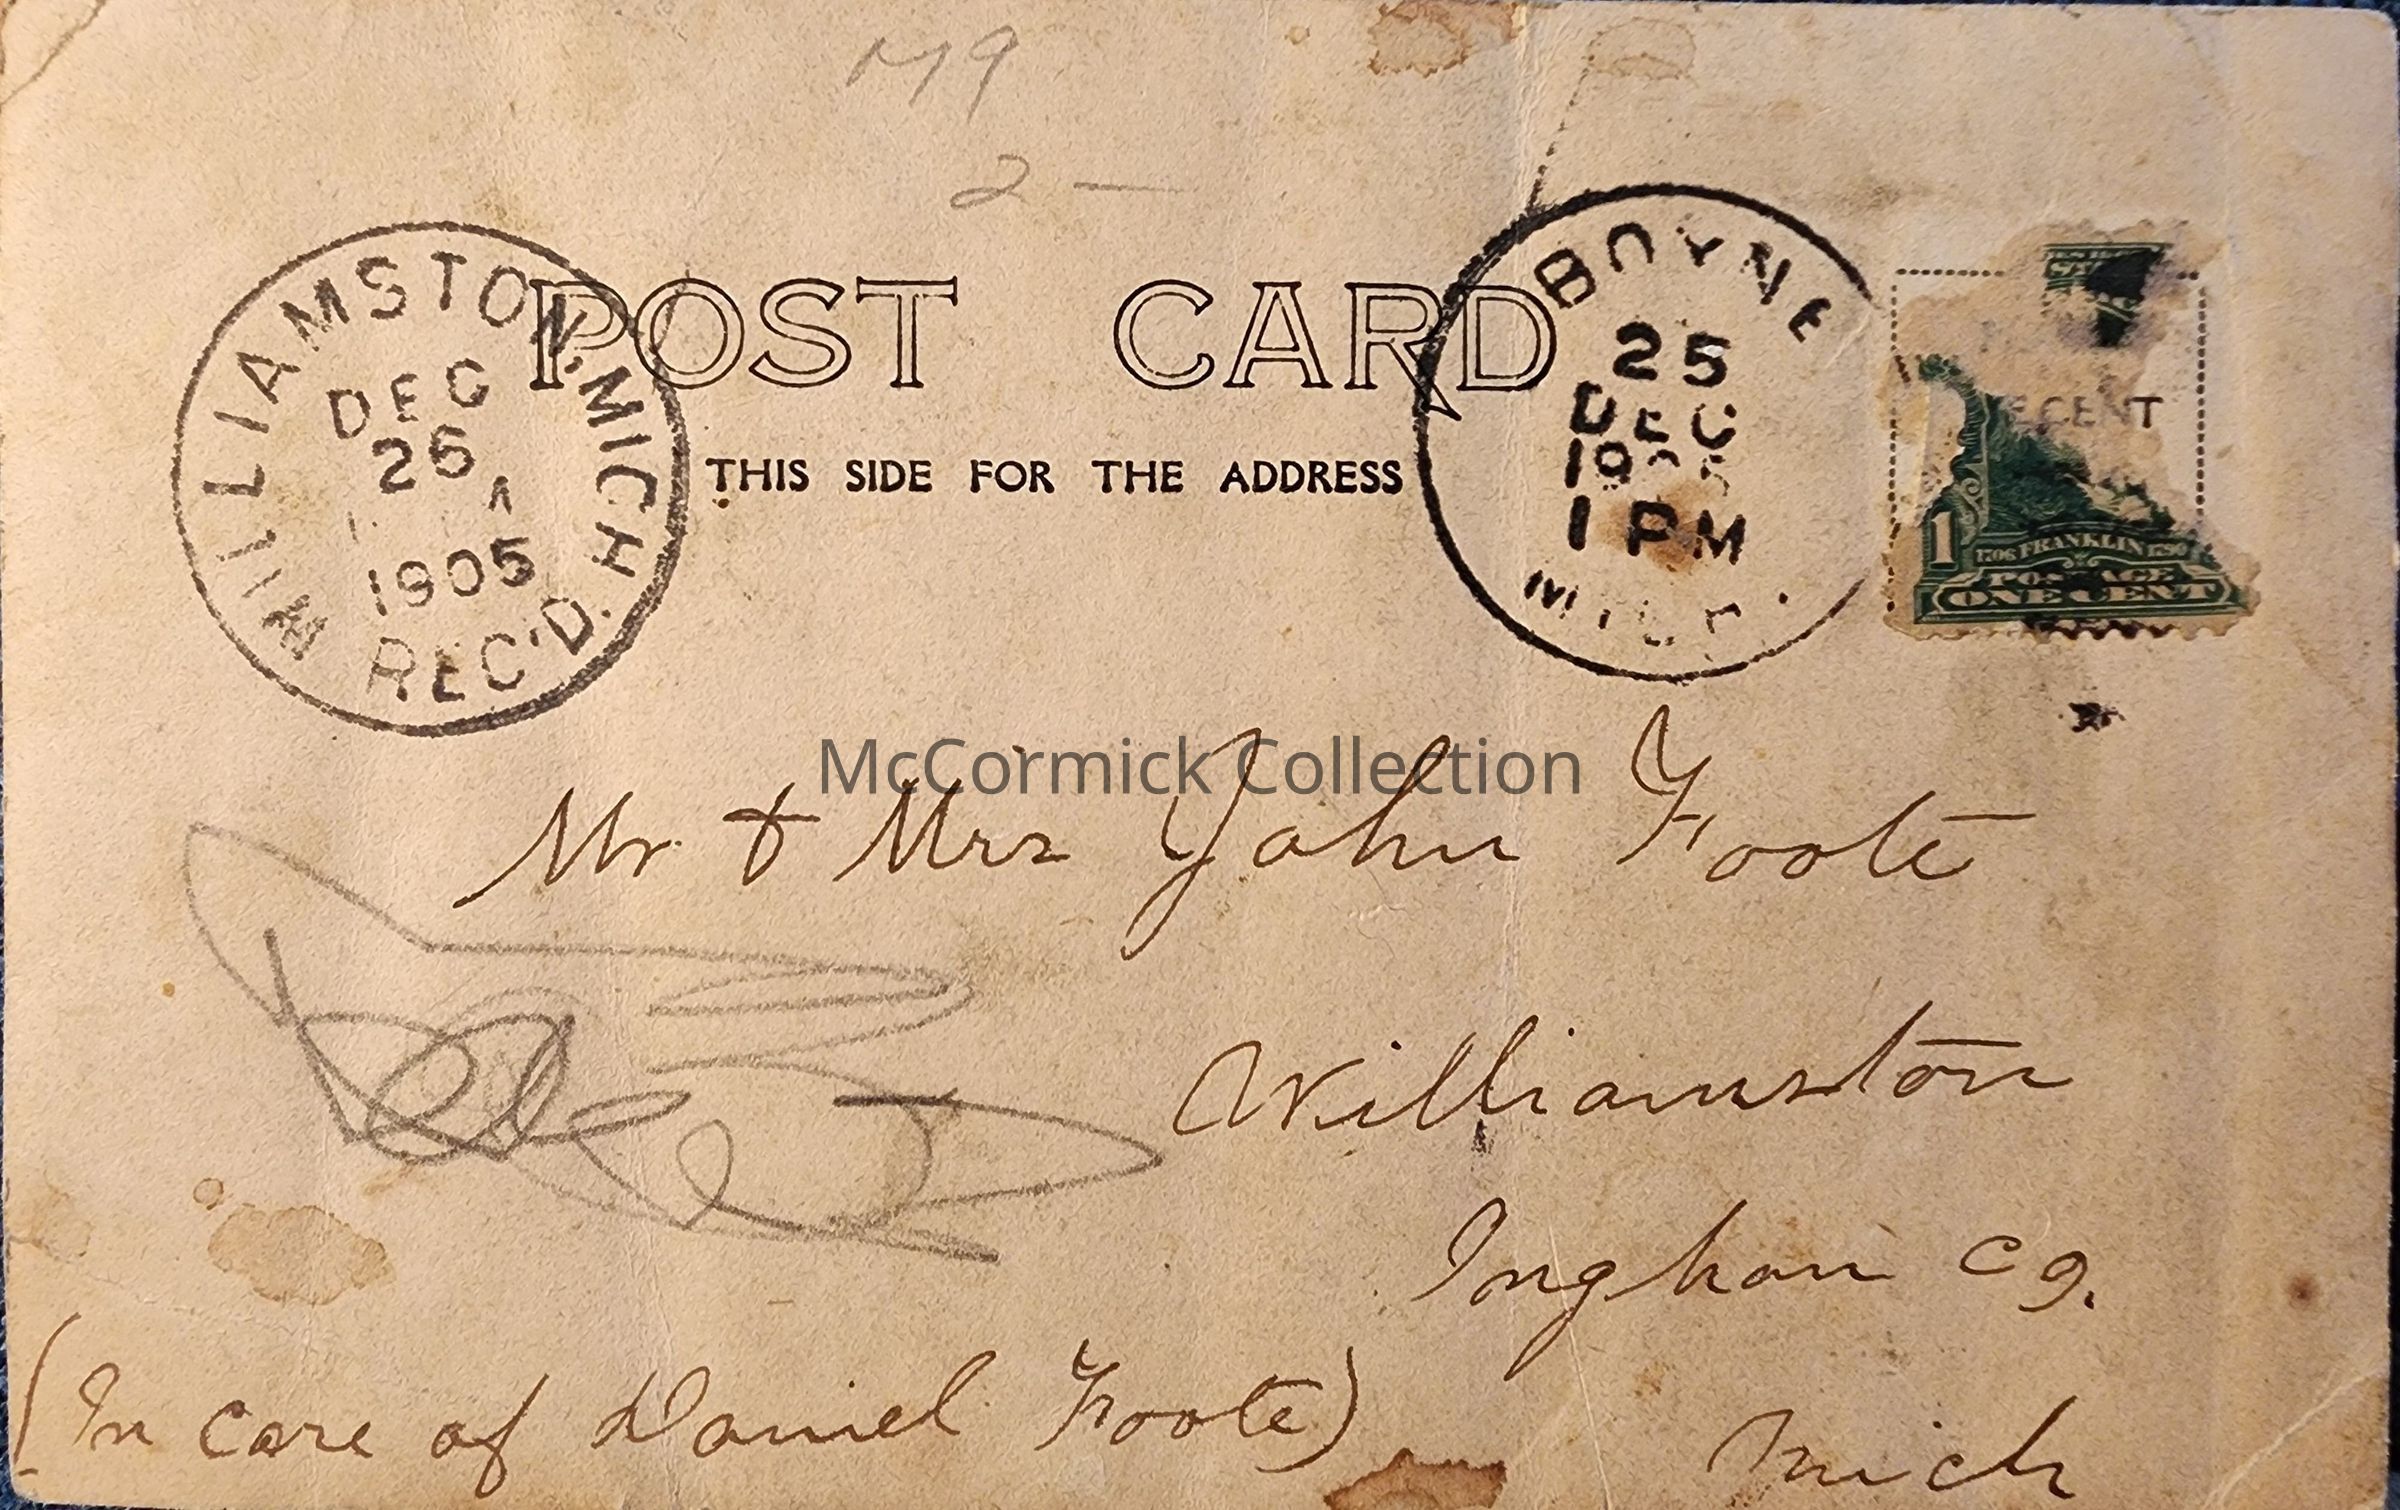 M9
2 —
WILLIAMSTON, MICH.
DEC
26
A
1905
REC'D.
POST CARD
THIS SIDE FOR THE ADDRESS
BOYNE
25
DEC
1905
1 PM
MICH.
CENT
1
1706 FRANKLIN 1790
POSTAGE
ONE CENT
McCormick Collection
Mr & Mrs John Foote
Williamston
Ingham Co.
(In care of Daniel Foote)
Mich